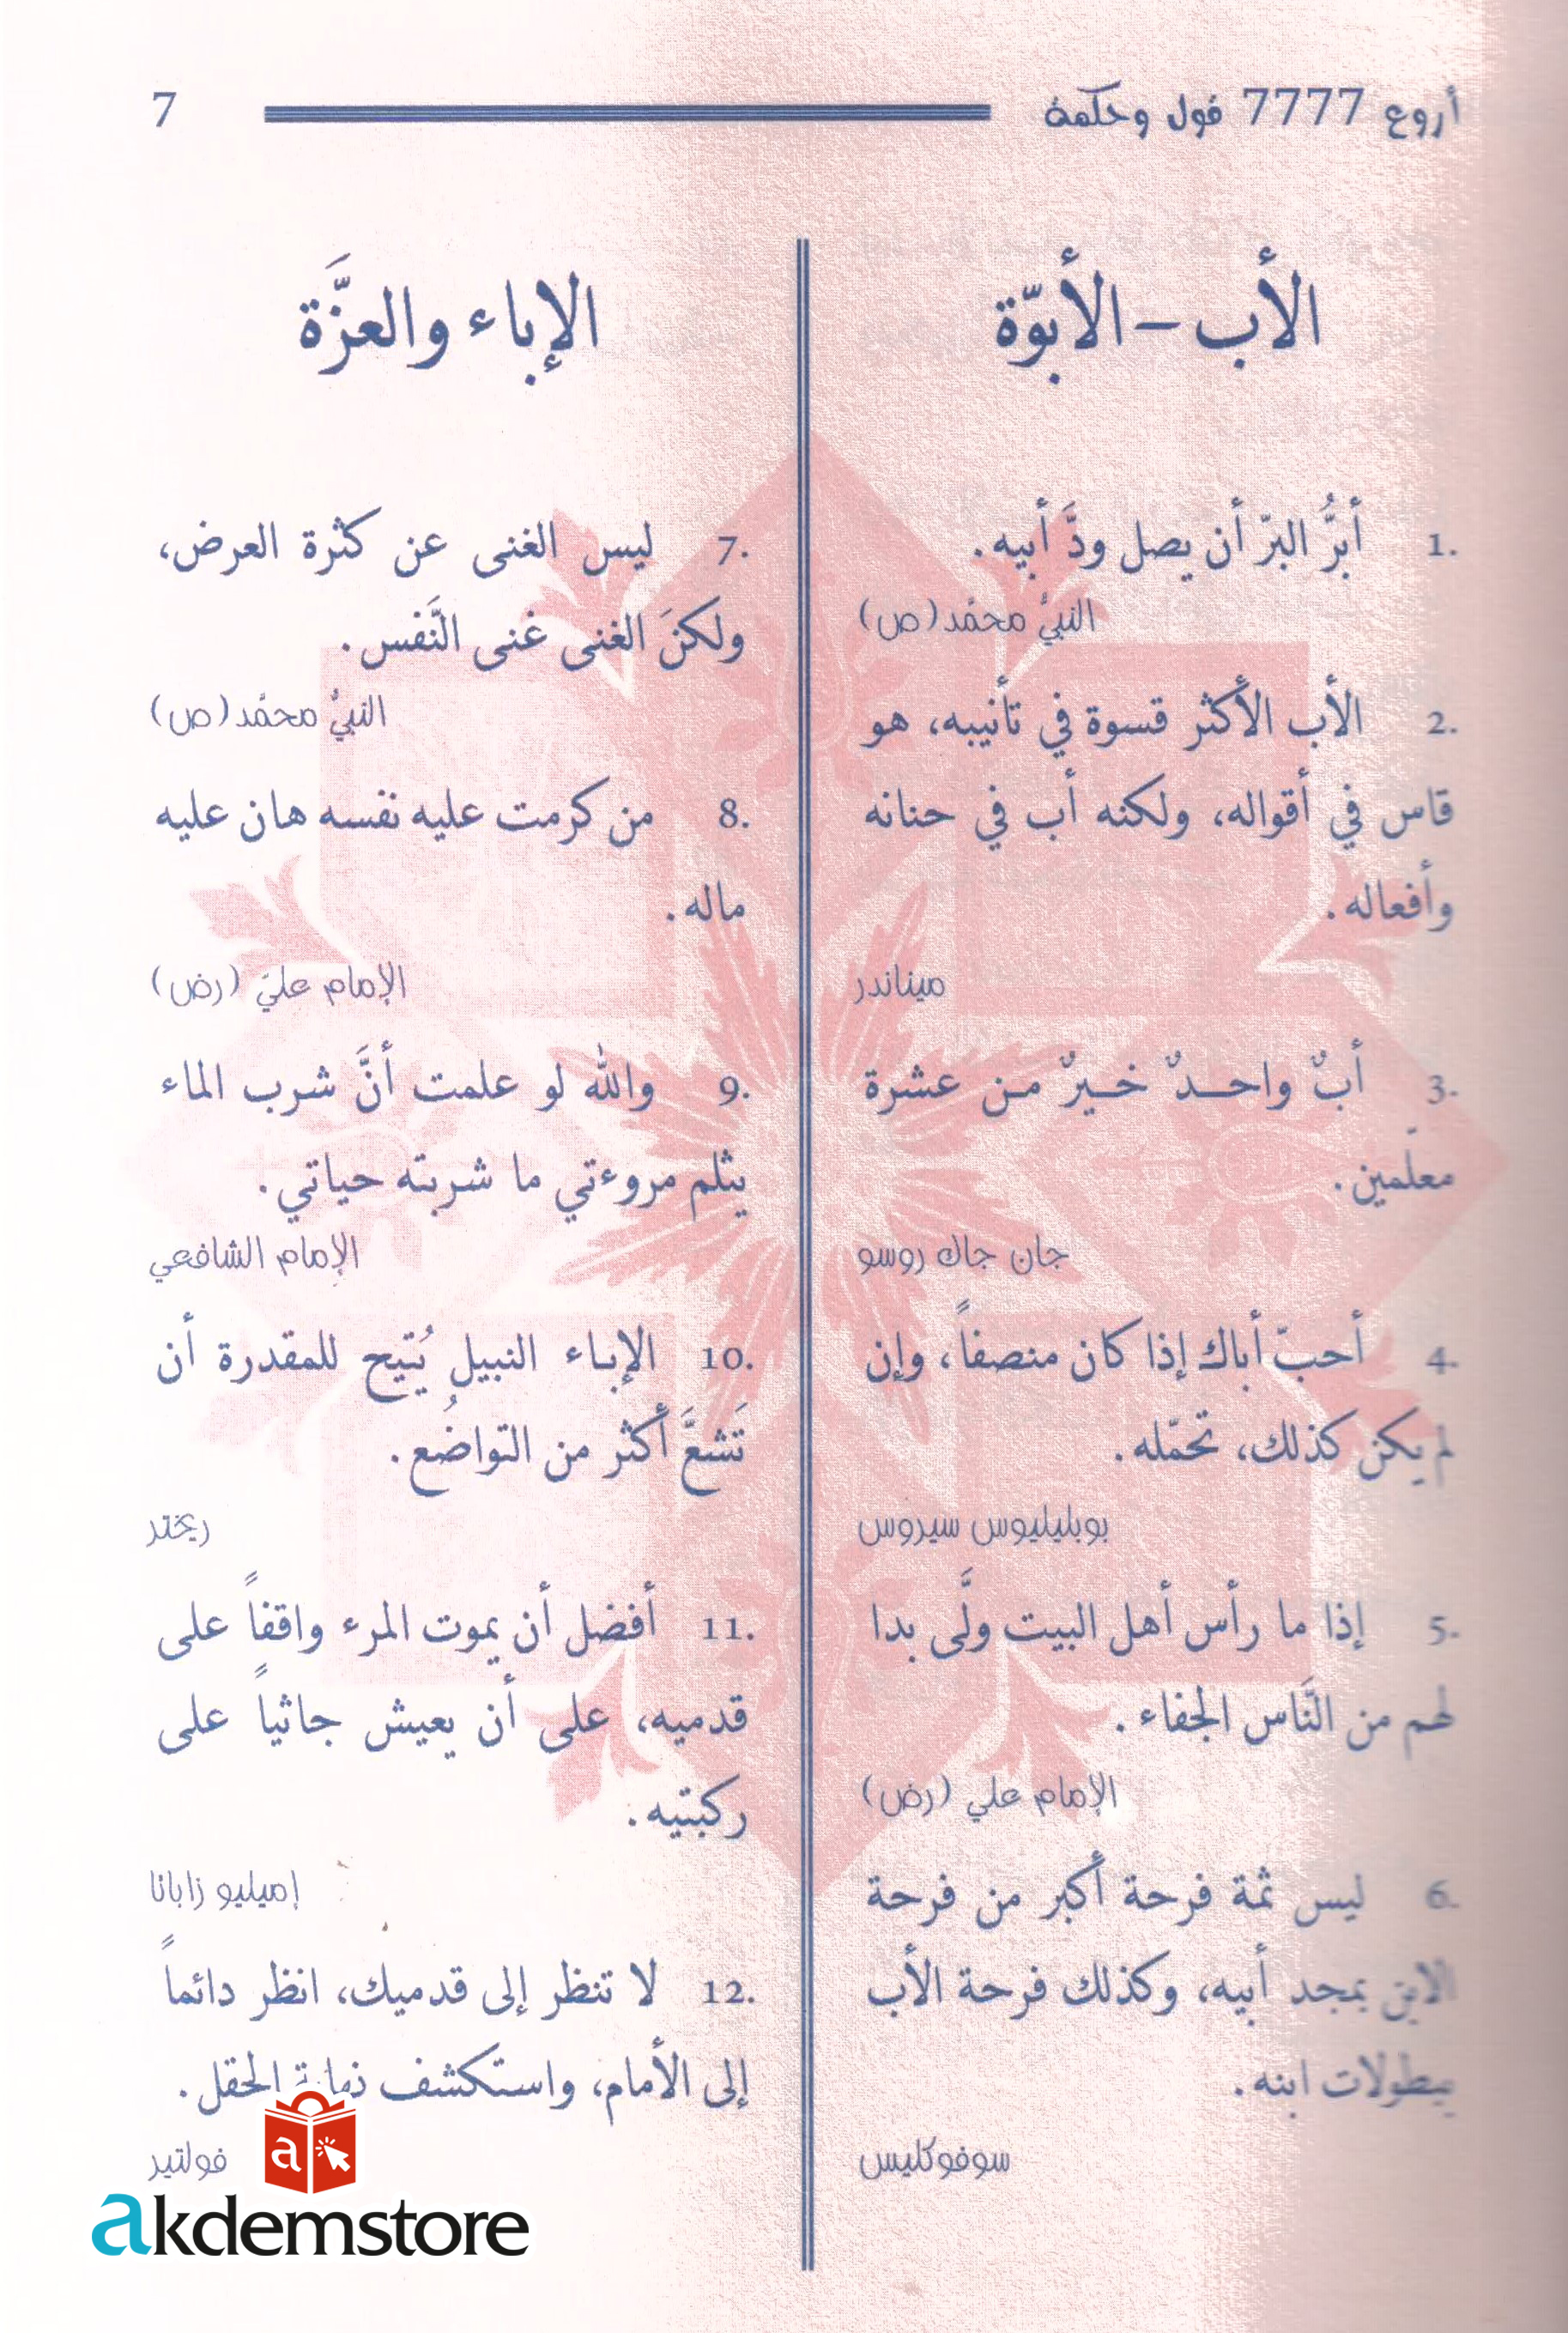 أروع 7777 قول وحكمة
7
الأب – الأبوّة
1. أبرُّ البرّ أن يصل ودَّ أبيه.
النبيُّ محمّد (ص)
2. الأب الأكثر قسوة في تأنيبه، هو
قاس في أقواله، ولكنه أب في حنانه
وأفعاله.
ميناندر
3. أبٌ واحـــدٌ خـيرٌ مـن عشرة
معلّمين.
جان جاك روسو
4. أحبّ أباك إذا كان منصفاً، وإن
لم يكن كذلك، تحمّله.
بوبليليوس سيروس
5. إذا ما رأس أهل البيت ولَّى بدا
لهم من النَّاس الجفاء.
الإمام علي (رض)
6. ليس ثمة فرحة أكبر من فرحة
الابن بمجد أبيه، وكذلك فرحة الأب
ببطولات ابنه.
سوفوكليس
الإباء والعزَّة
7. ليس الغنى عن كثرة العرض،
ولكنَ الغنى غنى النَّفس.
النبيُّ محمّد (ص)
8. من كرمت عليه نفسه هان عليه
ماله.
الإمام عليّ (رض)
9. والله لو علمت أنَّ شرب الماء
يثلم مروءتي ما شربته حياتي.
الإمام الشافعي
10. الإباء النبيل يُتيح للمقدرة أن
تَشعَّ أكثر من التواضُع.
ريختر
11. أفضل أن يموت المرء واقفاً على
قدميه، على أن يعيش جاثياً على
ركبتيه.
إميليو زاباتا
12. لا تنظر إلى قدميك، انظر دائماً
إلى الأمام، واستكشف نهاية الحقل.
فولتير
a
akdemstore